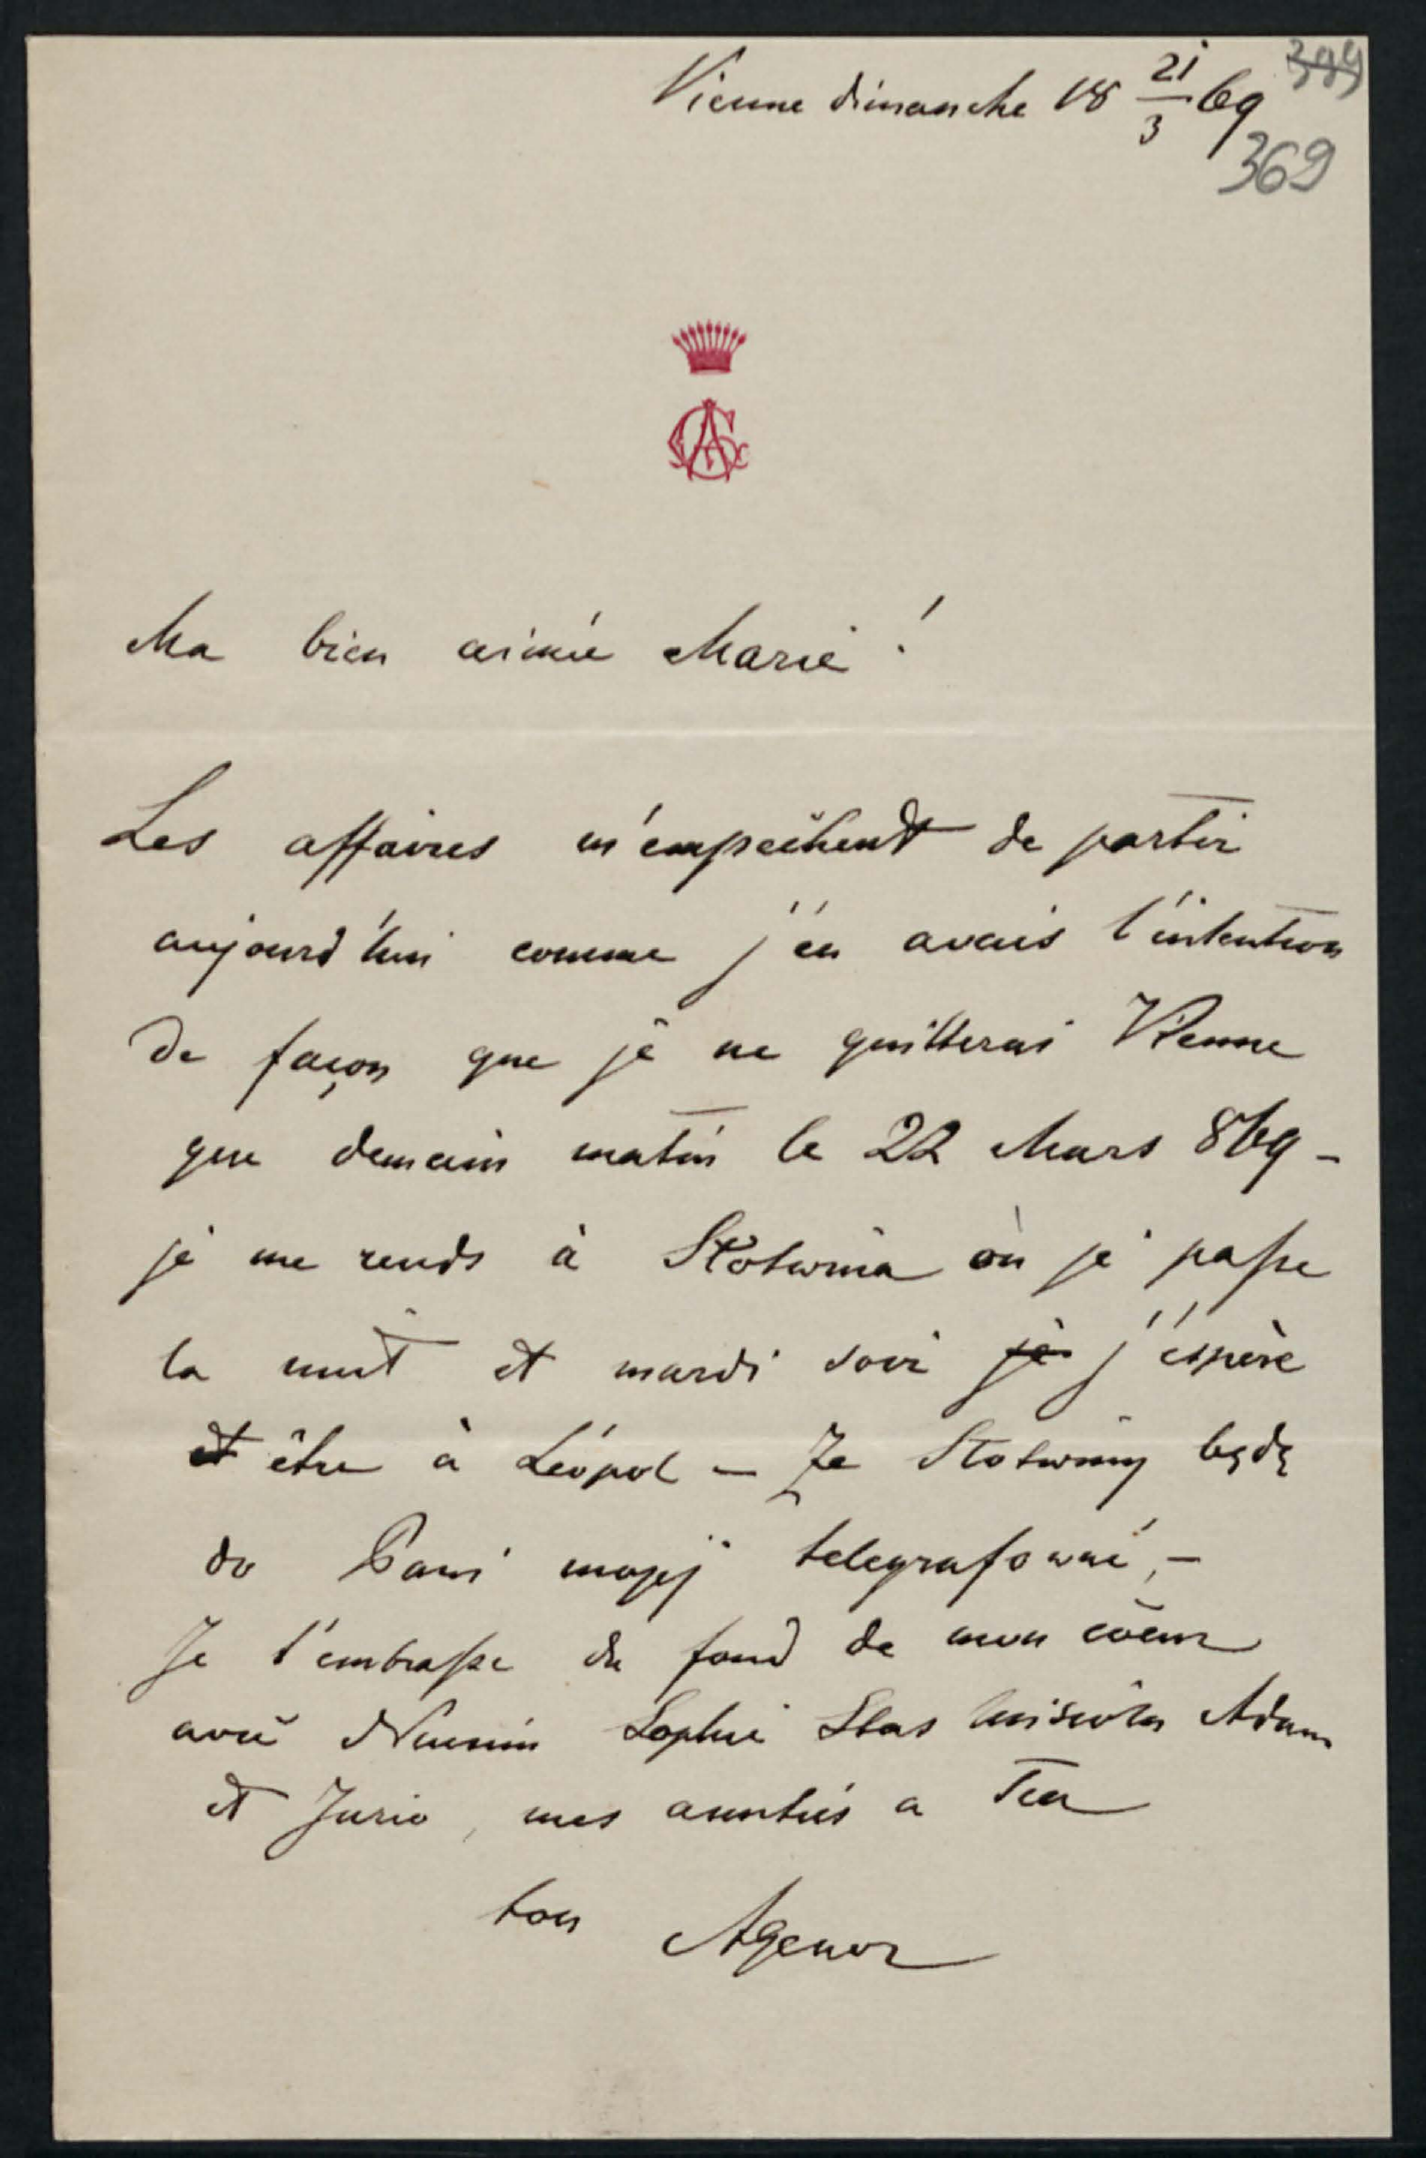 Vienne dimanche 18 21/3 69
399
369
Ma bien aimée Marie !
Les affaires m'empêchent de partir
aujourd'hui comme j'en avais l'intention
de façon que je ne quitterai Vienne
que demain matin le 22 Mars 869 –
je me rends à Słotwina où je passe
la nuit et mardi soir je j'espère
et être à Léopol – Ze Słotwiny będę
do Pani mojej telegrafować, –
Je t'embrasse du fond de mon coeur
avec Nunin Sophie Stas Adam
et Jurio, mes amitiés a Tea
ton Agenor